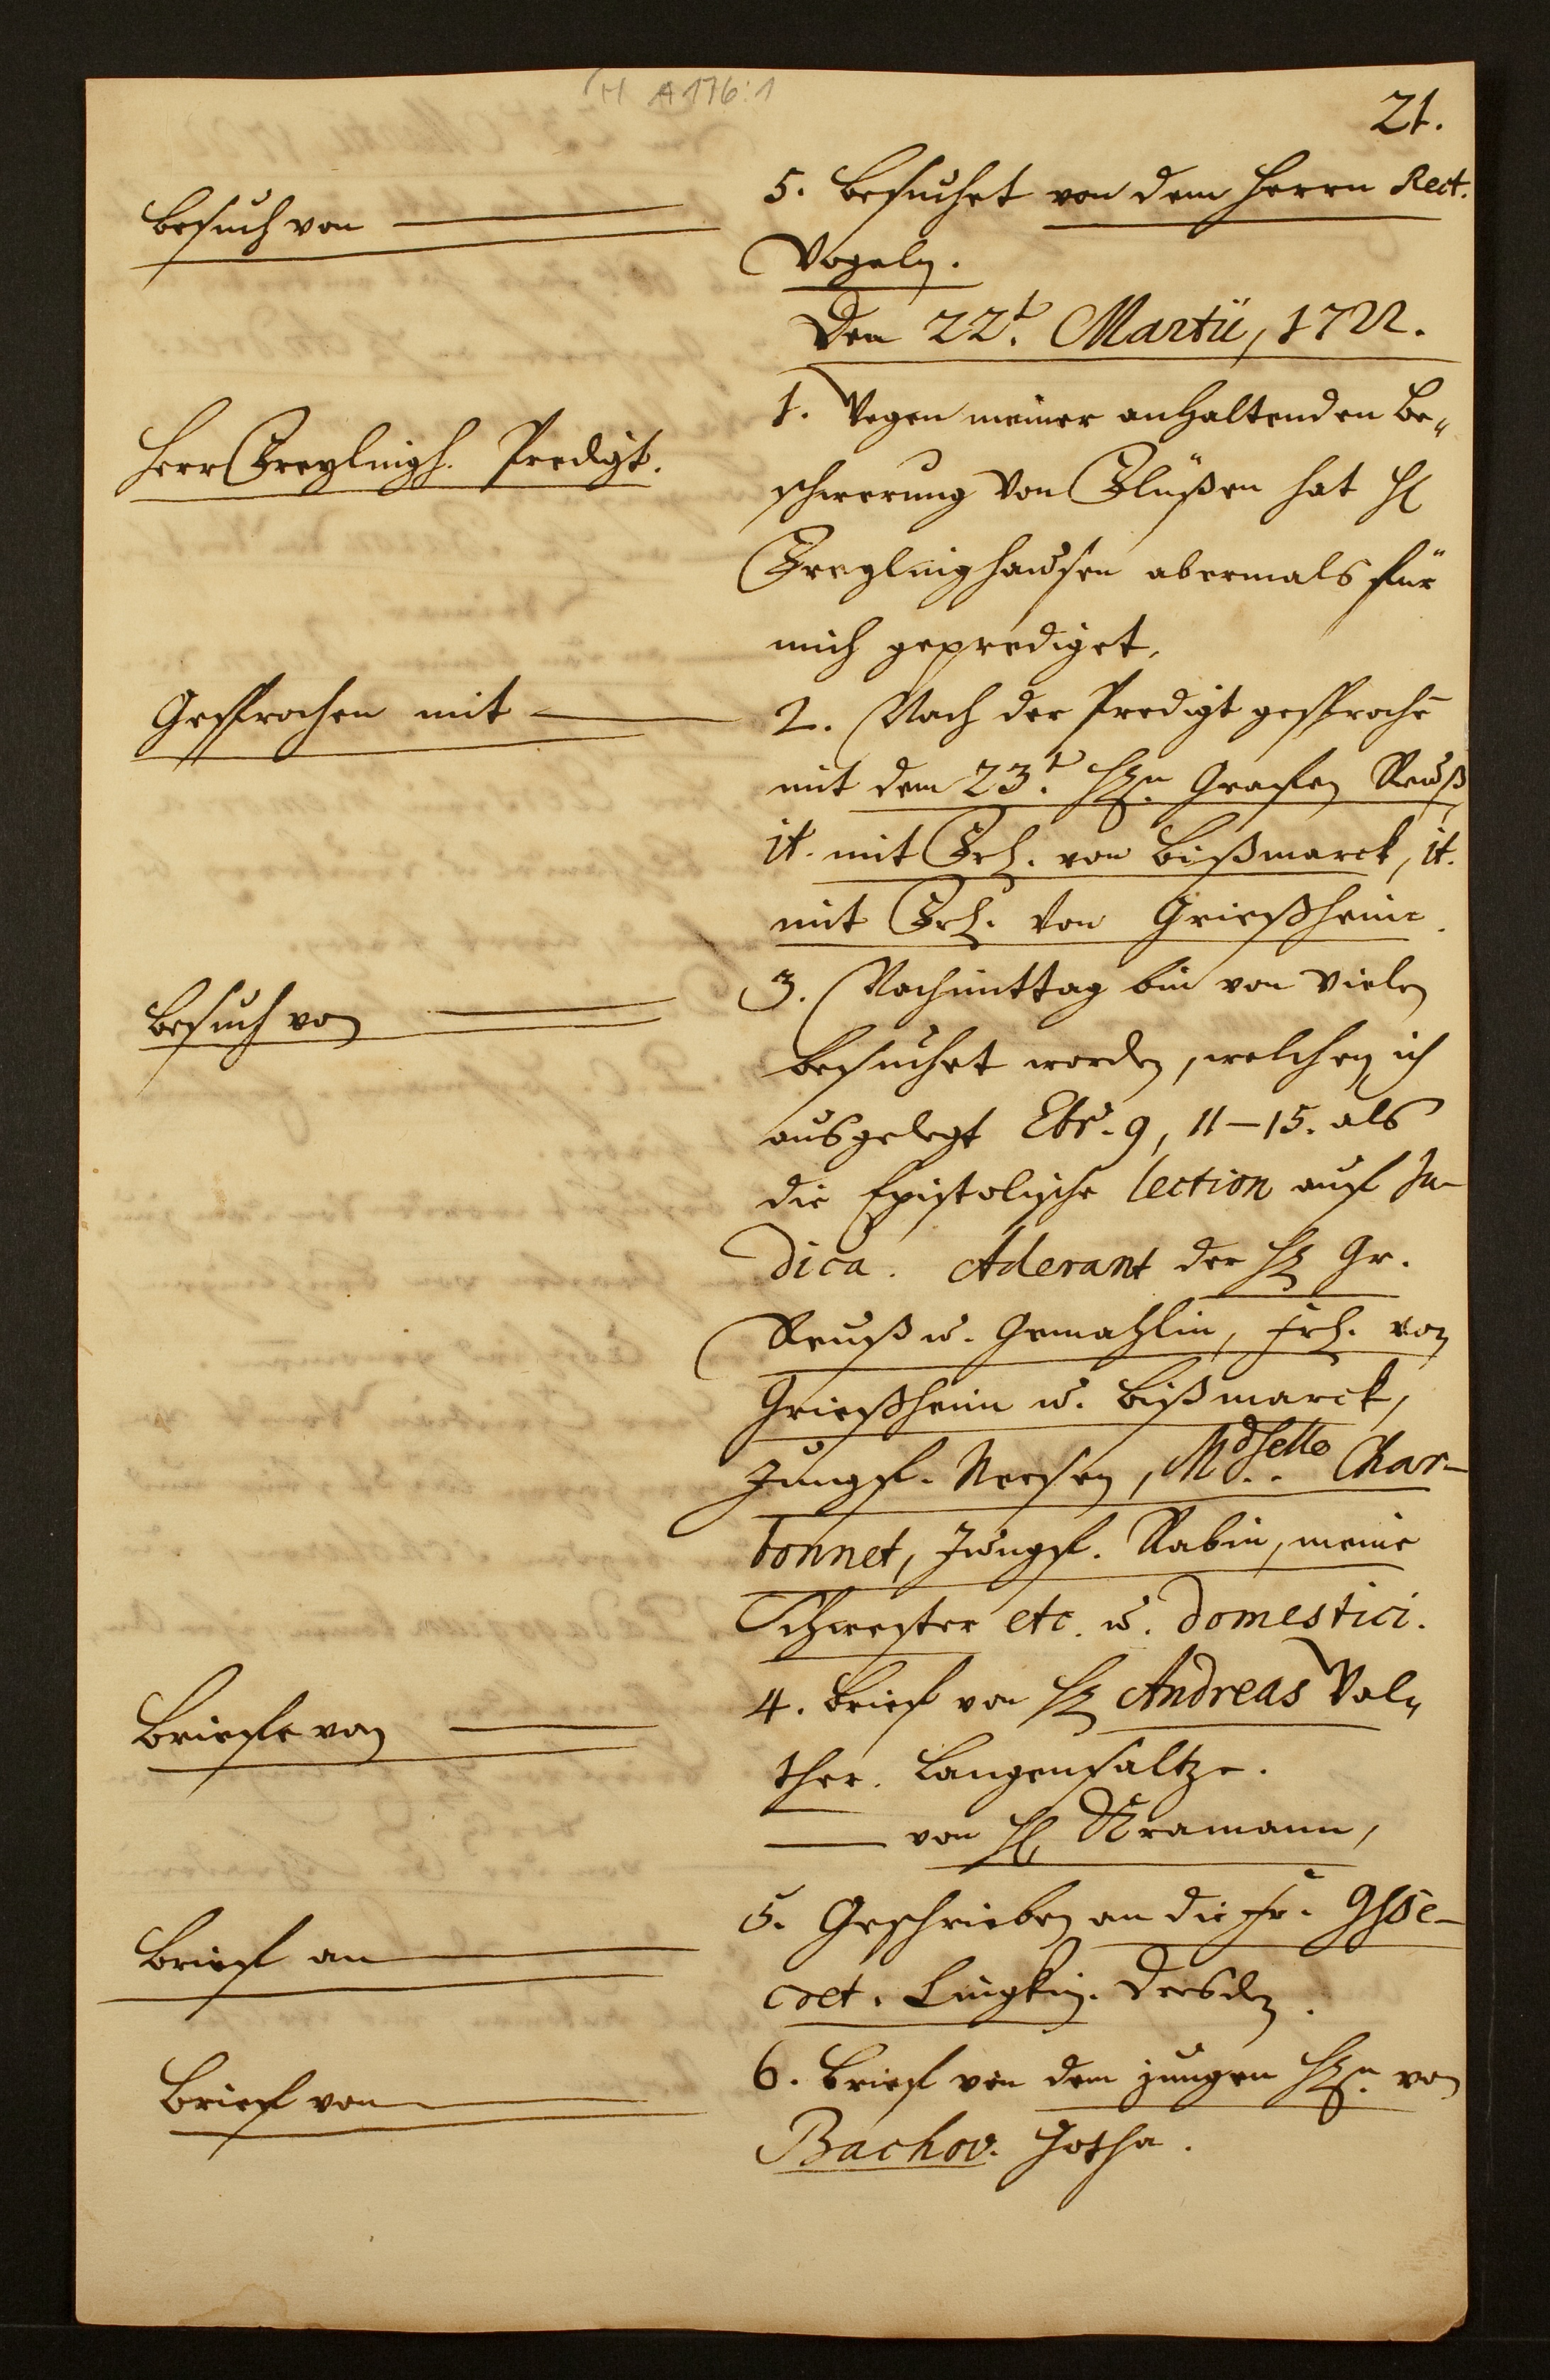 H A 176:1
21.
Besuch von
5. Besuchet von dem Herrn Rect.
Vogeln.
Den 22t. Martii, 1722.
Herr Freylingh. Predigt.
1. Wegen meiner anhaltenden Be„
schwerung von Flüßen hat H
Freylinghausen abermals für
mich geprediget.
Gesprochen mit
2. Nach der Predigt gesproche͞
mit dem 23t. Hrn. Grafen Reuß
it. mit Frl. von Bißmarck, it.
mit Frl. von Grießheim.
Besuch von
3. Nachmittag bin von vielen
besuchet worden, welchen ich
ausgelegt Ebr. 9, 11–15. als
die Epistolische lection auf Ju-
dica. Aderant der Hr Gr.
Reuß u. Gemahlin, Frl. von
Grießheim u. Bißmarck,
Jungf. Neesen, Mdselle Char-
bonnet, Jungf. Rabin, meine
Schwester etc. u. domestici.
Briefe von
4. Brief von Hr Andreas Wal„
ther. Langensaltze.
— von H. Kramann,
Brief an
5. Geschrieben an die Fr.
Dresden.
Brief von
6. Brief von dem jungen Hrn. von
Bachov. Gotha.